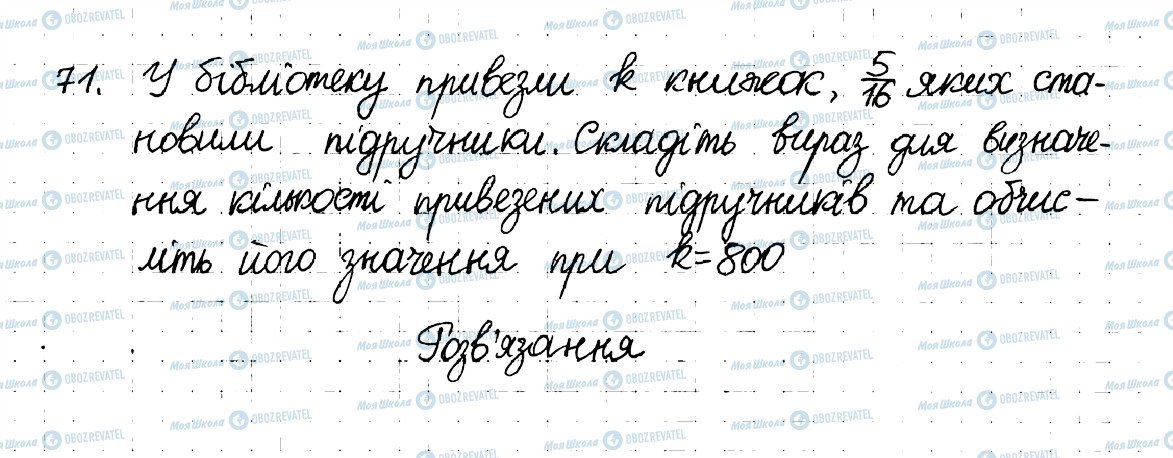 71. У бібліотеку привезли k книжок, 5/16 яких ста-
новили підручники. Складіть вираз для визначе-
ння кількості привезених підручників та обчис-
літь його значення при k=800
Розв'язання